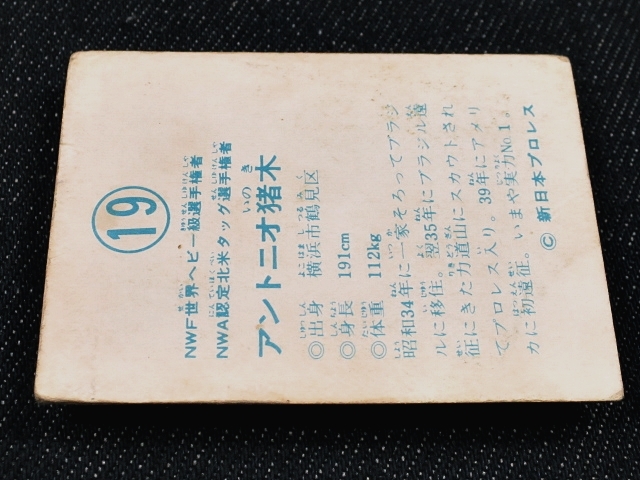 19
NWF世界ヘビー級選手権者
NWA認定北米タッグ選手権者
アントニオ猪木
◎出身 横浜市鶴見区
◎身長 191cm
◎体重 112kg
昭和34年に一家そろってブラジ
ルに移住。翌35年にブラジル遠
征にきた力道山にスカウトされ
てプロレス入り。39年にアメリ
カに初遠征。いまや実力No.1。
© 新日本プロレス